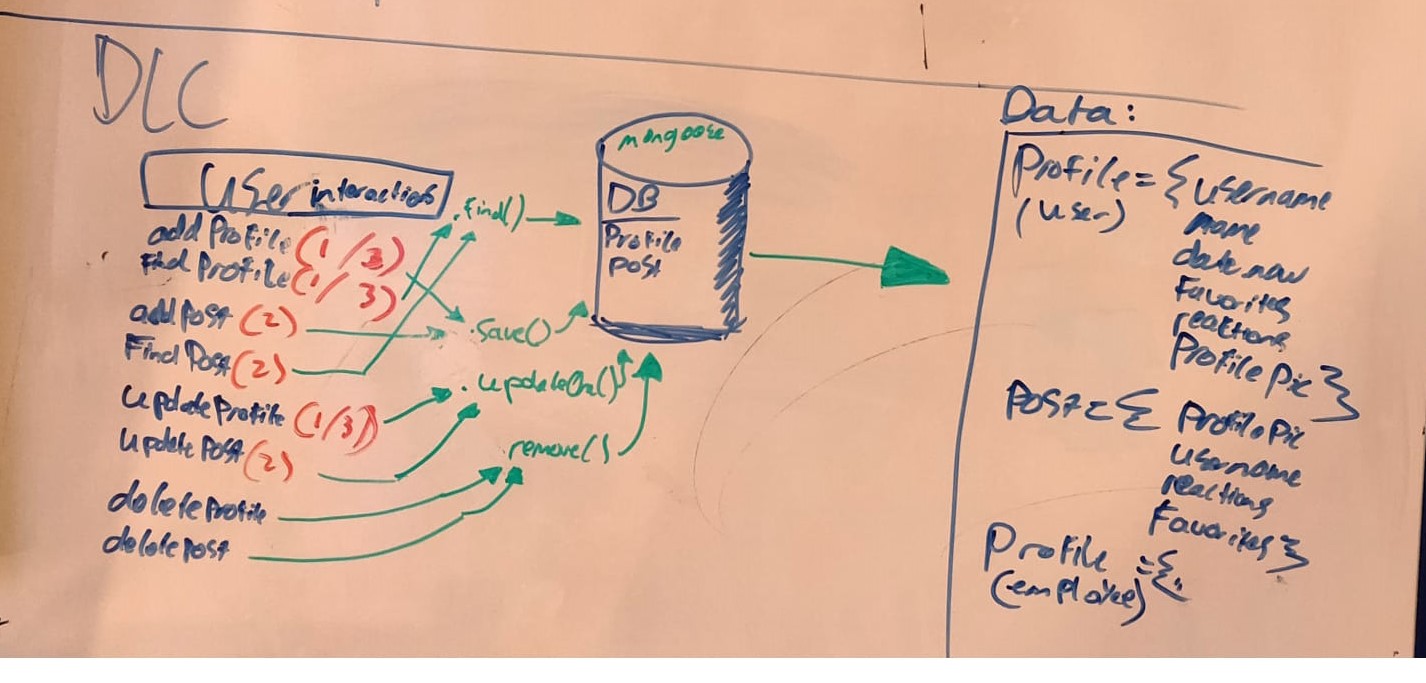 DLC
User interactions
add Profile (1/3)
find Profile (1/3)
add Post (2)
Find Post (2)
update Profile (1/3)
update Post (2)
delete Profile
delete post
.find()
.save()
.updateOne()
remove()
mongoose
DB
Profile
post
Data:
Profile = { username
(user)
name
date.now
Favorites
reaktions
Profile pic }
Post = { Profile Pic
username
reactions
Favorites }
Profile = {
(employee)